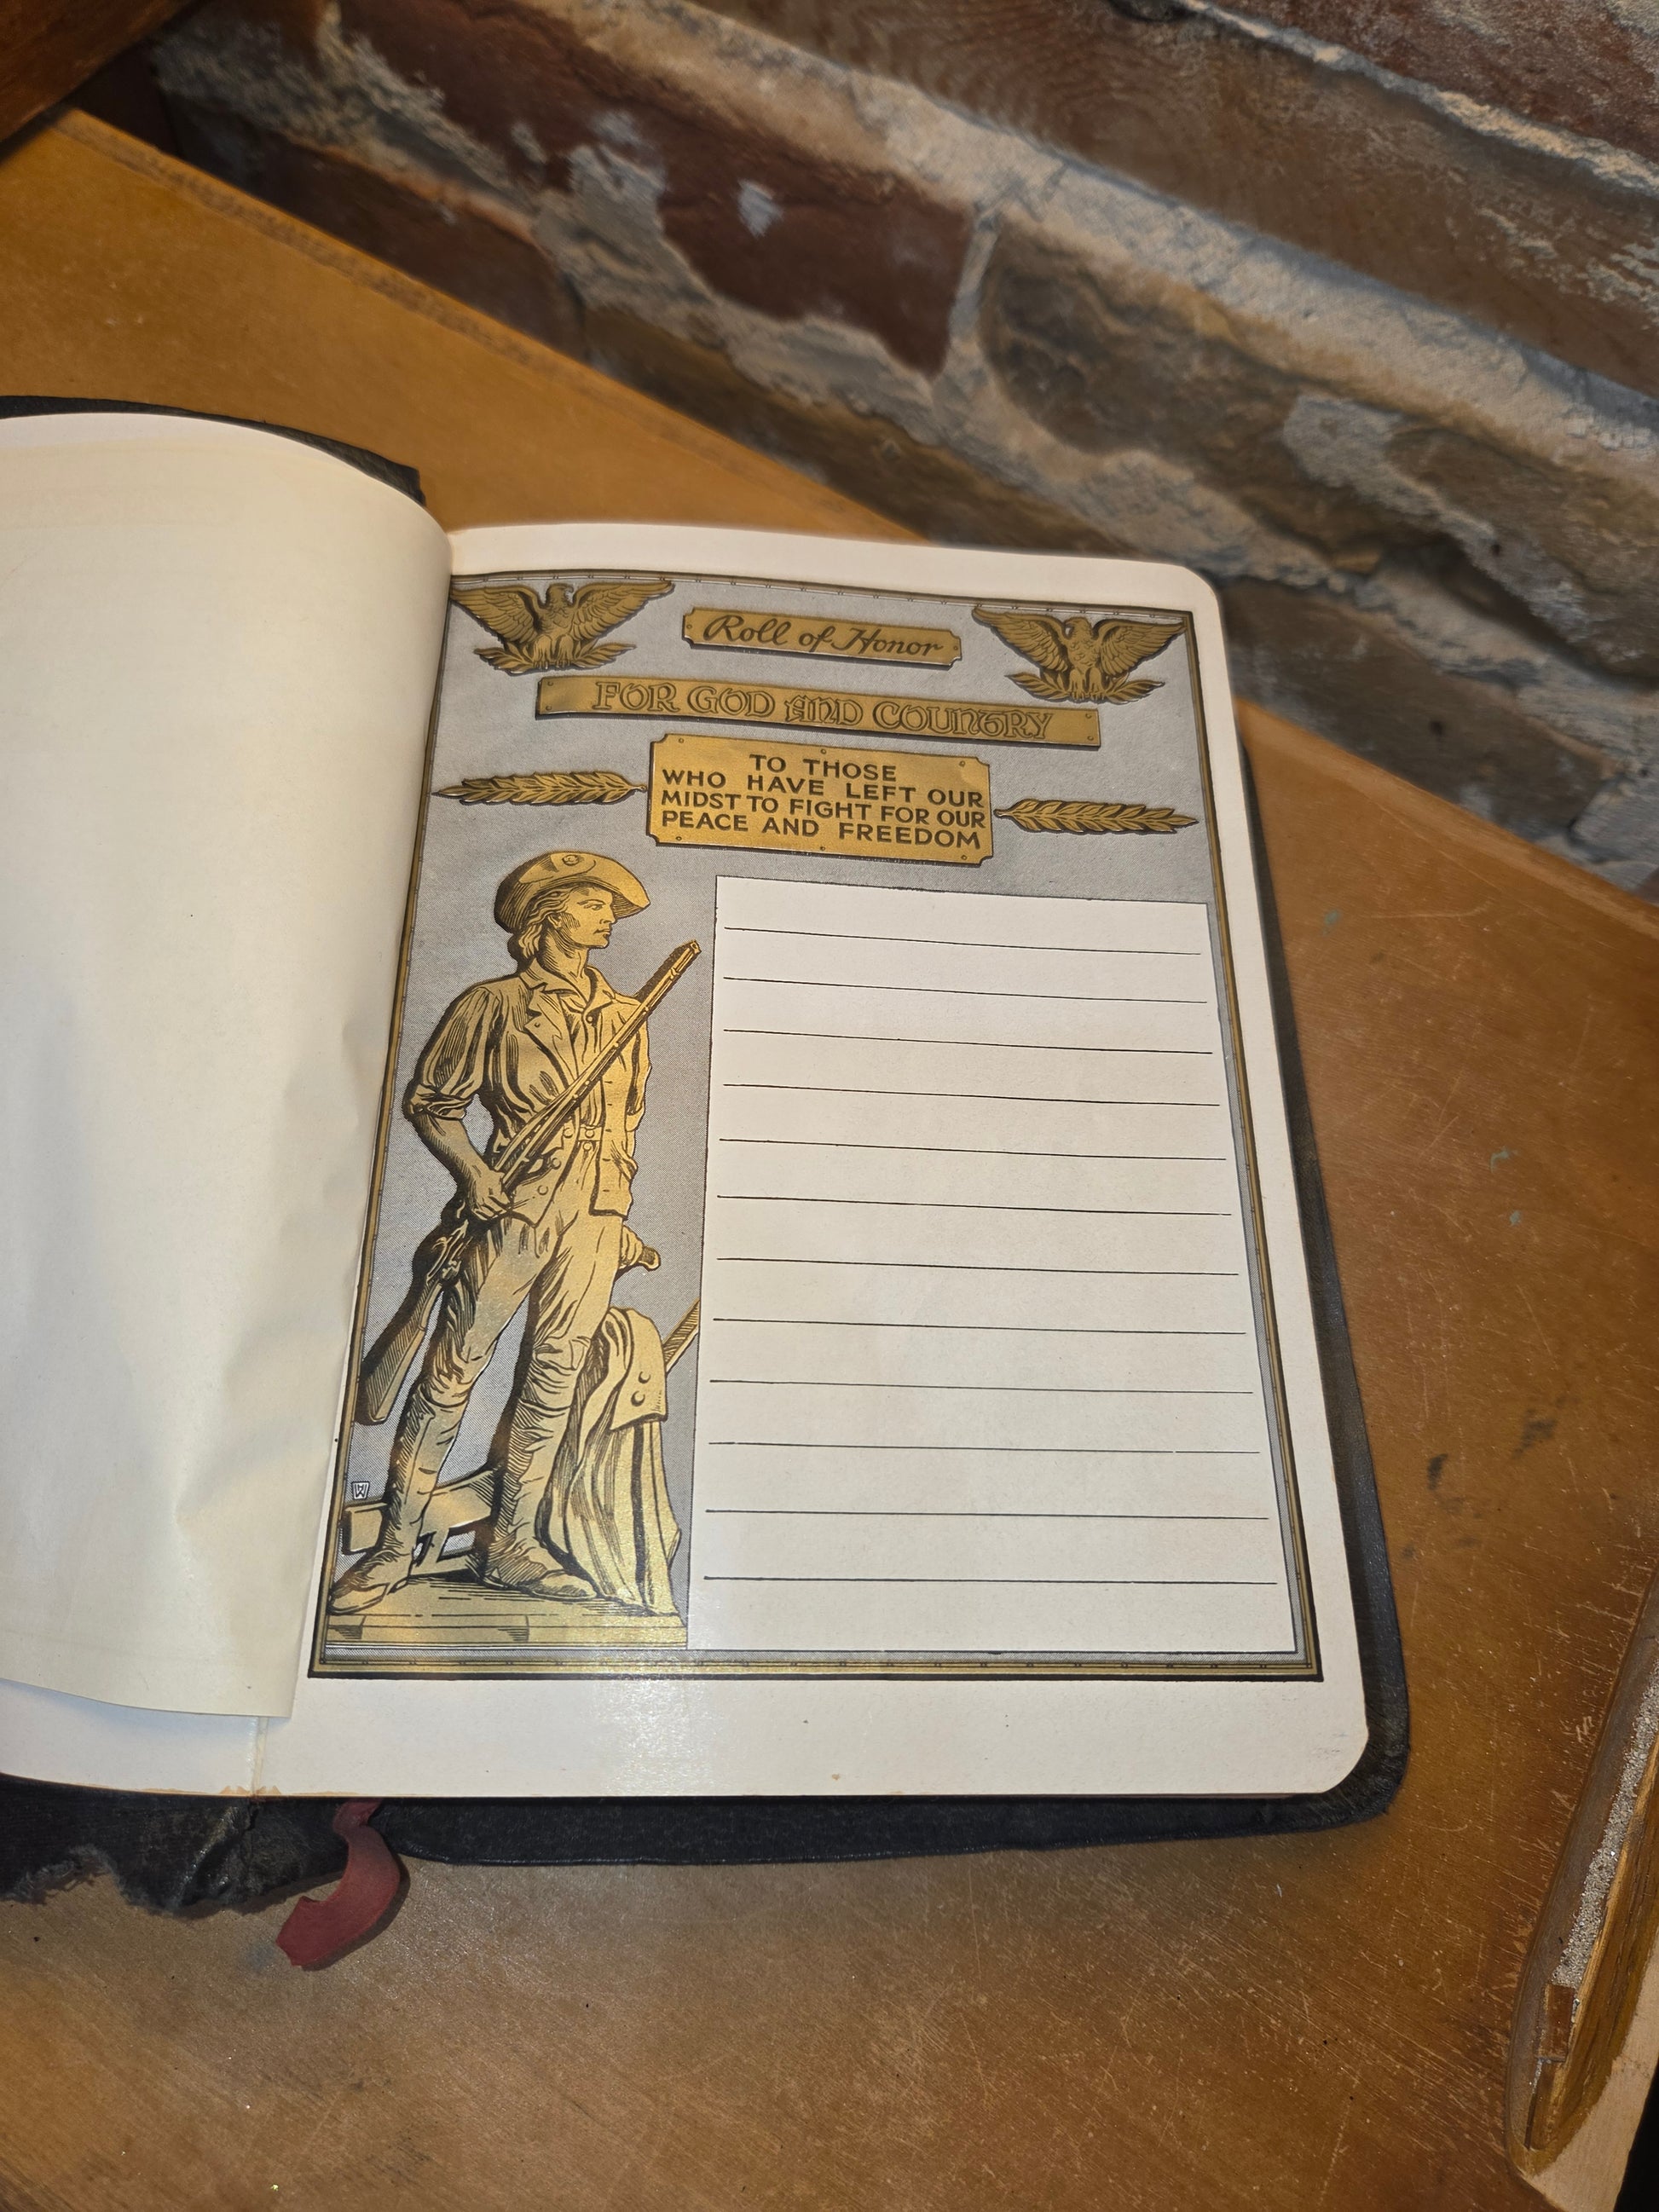 Roll of Honor
FOR GOD AND COUNTRY
TO THOSE
WHO HAVE LEFT OUR
MIDST TO FIGHT FOR OUR
PEACE AND FREEDOM